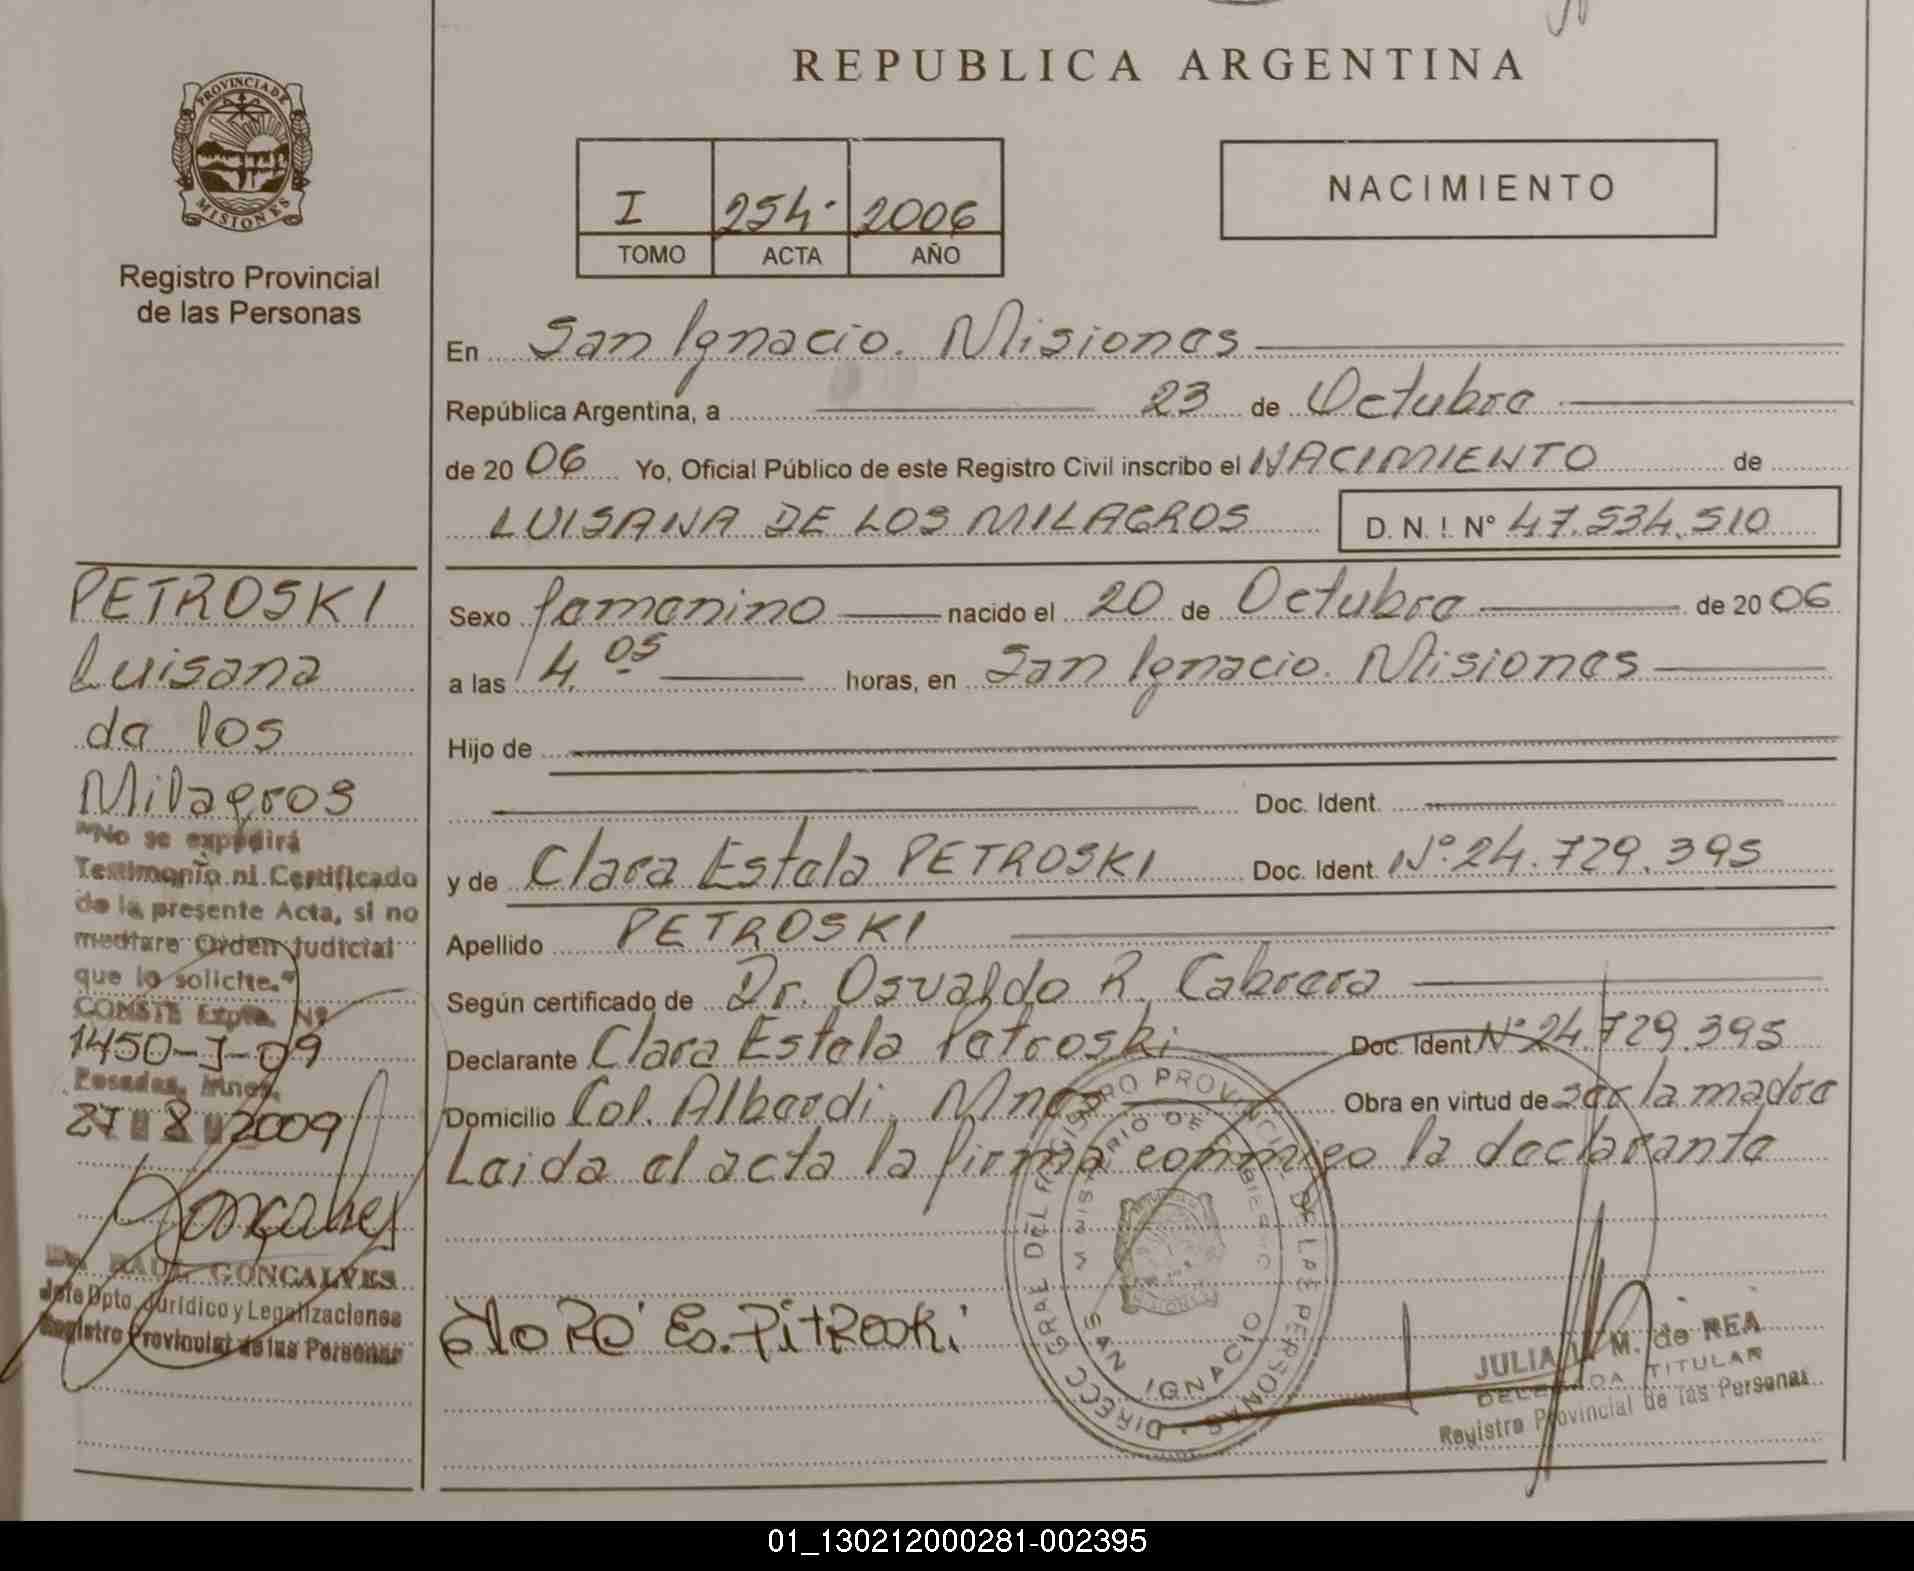 REPUBLICA ARGENTINA
PROVINCIA DE
MISIONES
Registro Provincial
de las Personas
I 254 2006
TOMO ACTA AÑO
NACIMIENTO
En San Ignacio. Misiones
República Argentina, a 23 de Octubre
de 20 06 Yo, Oficial Público de este Registro Civil inscribo el NACIMIENTO de
LUISANA DE LOS MILAGROS D. N. I. N° 47.534.510
Sexo femenino nacido el 20 de Octubre de 20 06
a las 4.05 horas, en San Ignacio. Misiones
Hijo de
Doc. Ident.
y de Clara Estela PETROSKI Doc. Ident. N°.24.729.395
Apellido PETROSKI
Según certificado de Dr. Osvaldo R. Cabrera
Declarante Clara Estela Petroski Doc. Ident. N°24.729.395
Domicilio Col. Alberdi. Mnes Obra en virtud de ser la madre
Leida el acta la firma conmigo la declarante
PETROSKI
Luisana
de los
Milagros
"No se expedirá
Testimonio ni Certificado
de la presente Acta, si no
mediare Orden Judicial
que lo solicite."
CONSTE Expte. Nº
1450-J-09
Posadas, Mnes,
27 8 2009
Goncalves
RAUL GONCALVES
Jefe Dpto. Jurídico y Legalizaciones
Registro Provincial de las Personas
Es. PitRoski
DIRECC GRAL DEL REGISTRO PROVINCIAL DE LAS PERSONAS
MINISTERIO DE GOBIERNO
SAN IGNACIO
JULIA M. de REA
DELEGADA TITULAR
Registro Provincial de las Personas
01_130212000281-002395